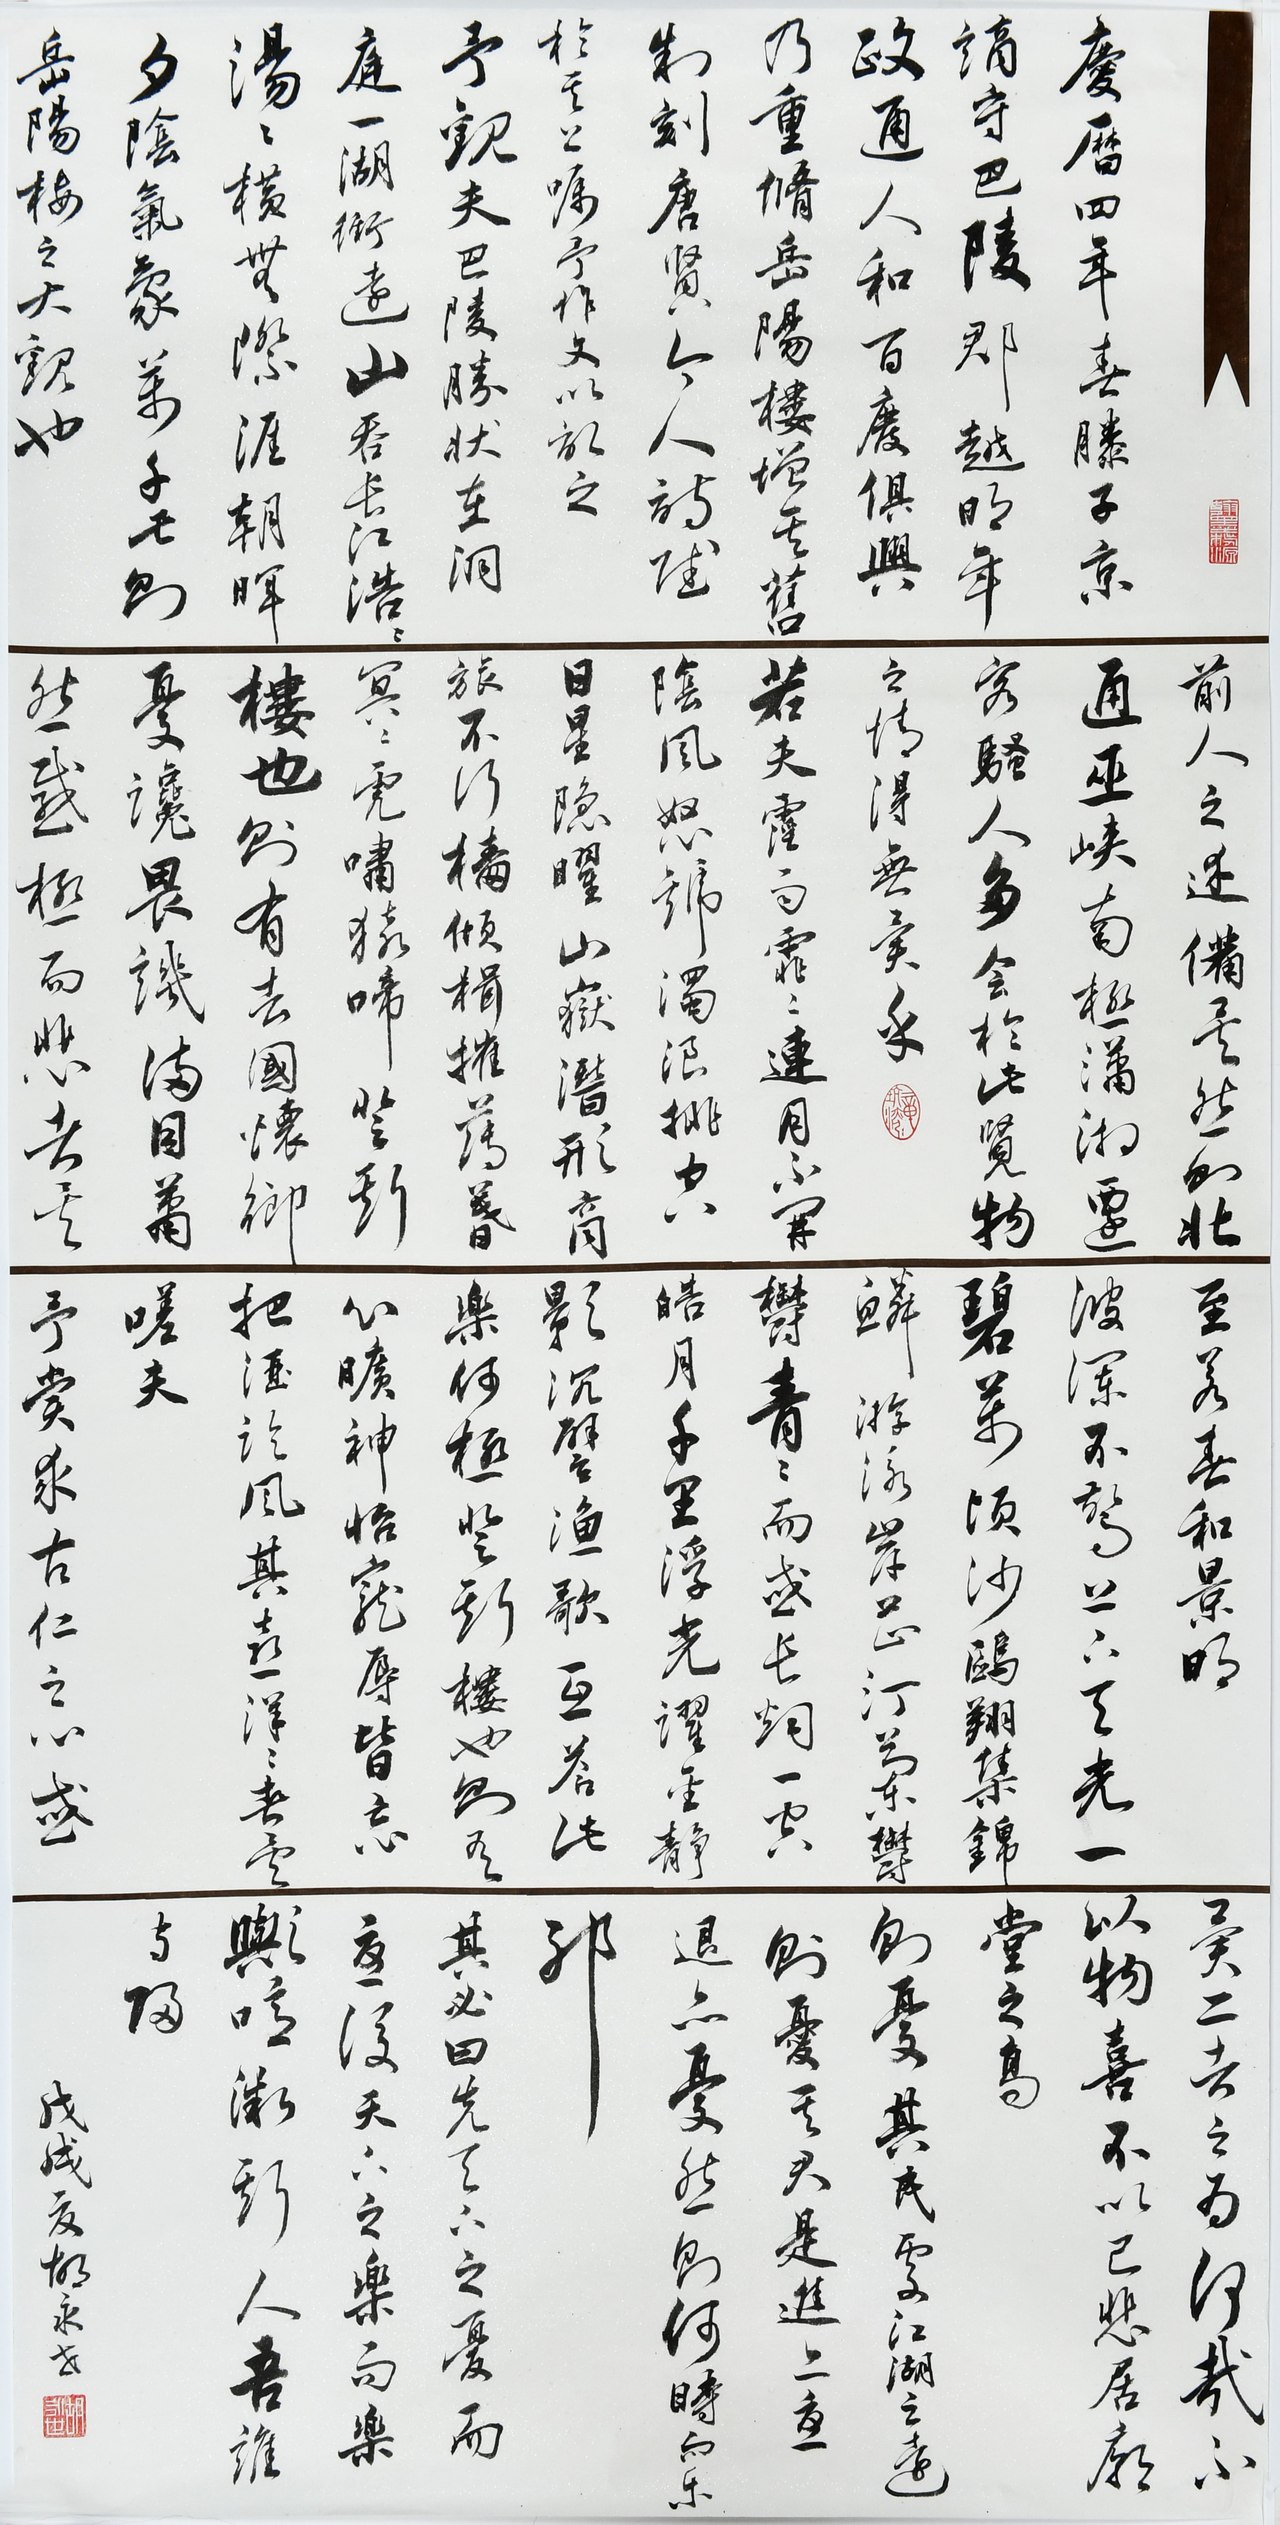 慶曆四年春滕子京
謫守巴陵郡越明年
政通人和百廢俱興
乃重脩岳陽樓增其舊
制刻唐賢今人詩賦
於其上囑予作文以記之
予觀夫巴陵勝狀在洞
庭一湖銜遠山吞長江浩〻
湯〻橫無際涯朝暉
夕陰氣象萬千此則
岳陽樓之大觀也
前人之述備矣然則北
通巫峽南極瀟湘遷
客騷人多会於此覽物
之情得無異乎
若夫霪雨霏〻連月不開
陰風怒號濁浪排空
日星隱曜山嶽潛形商
旅不行檣傾楫摧薄暮
冥〻虎嘯猿啼登斯
樓也則有去國懷鄉
憂讒畏譏滿目蕭
然感極而悲者矣
至若春和景明
波瀾不驚上下天光一
碧萬頃沙鷗翔集錦
鱗游泳岸芷汀蘭鬱
鬱青〻而或長煙一空
皓月千里浮光躍金靜
影沉璧漁歌互答此
樂何極登斯樓也則有
心曠神怡寵辱皆忘
把酒臨風其喜洋〻者矣
嗟夫
予嘗求古仁之心或
異二者之為何哉不
以物喜不以己悲居廟
堂之高
則憂其民處江湖之遠
則憂其君是進亦憂
退亦憂然則何時而樂
耶
其必曰先天下之憂而
憂後天下之樂而樂
歟噫微斯人吾誰
与歸
戊戌夏胡永